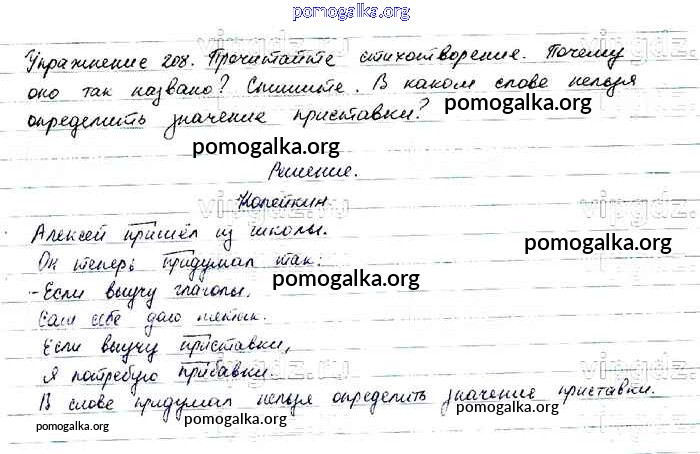 pomogalka.org
Упражнение 208. Прочитайте стихотворение. Почему
оно так названо? Спишите. В каком слове нельзя
pomogalka.org
определить значение приставки?
pomogalka.org
Решение.
vipgdz.
Копейкин.
Алексей пришёл из школы.
pomogalka.org
Он теперь придумал так:
pomogalka.org
- Если выучу глаголы.
Сам себе даю пятак.
Если выучу приставки,
vipgdz.
Я потребую прибавки.
В слове придумал нельзя определить значение приставки.
pomogalka.org pomogalka.org pomogalka.org